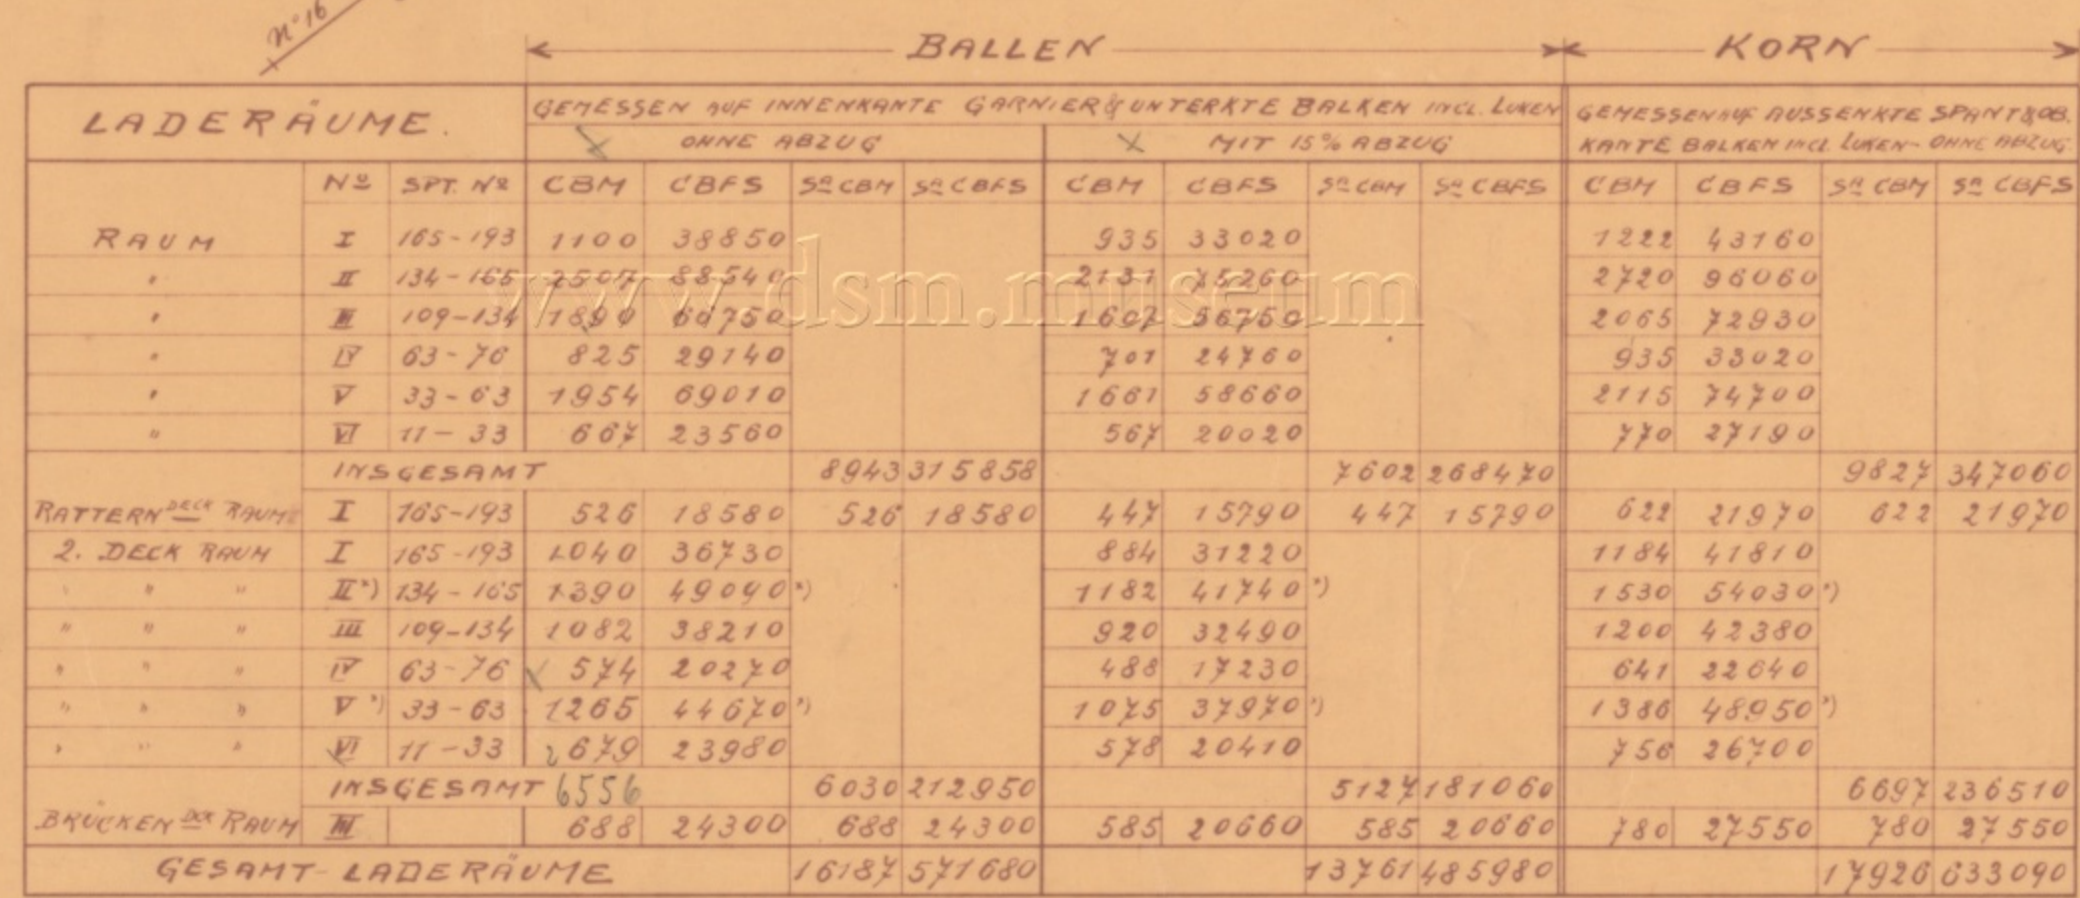 No 16
BALLEN KORN
LADERÄUME. GEMESSEN AUF INNENKANTE GARNIER & UNTERKTE BALKEN INCL. LUKEN GEMESSEN AUF AUSSENKTE SPANT & OB.
OHNE ABZUG MIT 15% ABZUG KANTE BALKEN INCL LUKEN - OHNE ABZUG
No SPT. No CBM CBFS Sa CBM Sa CBFS CBM CBFS Sa CBM Sa CBFS CBM CBFS Sa CBM Sa CBFS
RAUM I 165-193 1100 38850 935 33020 1222 43160
" II 134-165 2507 88540 2131 75260 2720 96060
" III 109-134 1890 66750 1607 56750 2065 72930
" IV 63-76 825 29140 701 24760 935 33020
" V 33-63 1954 69010 1661 58660 2115 74700
" VI 11-33 667 23560 567 20020 770 27190
INSGESAMT 8943 315858 7602 268470 9827 347060
RATTERN DECK RAUM I 165-193 526 18580 526 18580 447 15790 447 15790 622 21970 622 21970
2. DECK RAUM I 165-193 1040 36730 884 31220 1184 41810
" " " II*) 134-165 1390 49090*) 1182 41740*) 1530 54030*)
" " " III 109-134 1082 38210 920 32490 1200 42380
" " " IV 63-76 574 20270 488 17230 641 22640
" " " V*) 33-63 1265 44670*) 1075 37970*) 1386 48950*)
" " " VI 11-33 679 23980 578 20410 756 26700
INSGESAMT 6556 6030 212950 5127 181060 6697 236510
BRÜCKEN DECK RAUM III 688 24300 688 24300 585 20660 585 20660 780 27550 780 27550
GESAMT-LADERÄUME 16187 571680 13761 485980 17926 633090
www.dsm.museum